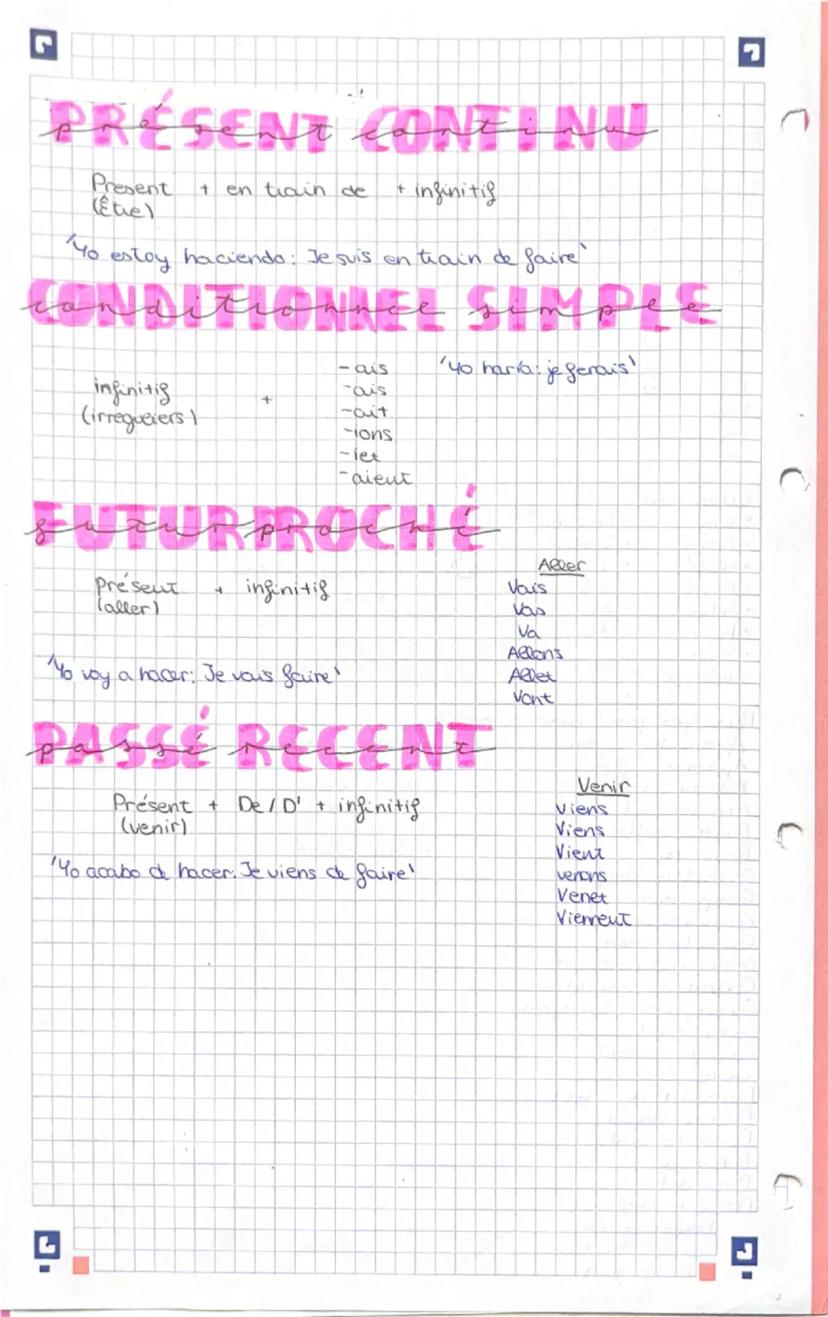 PRÉSENT CONTINU
présent continu
Present + en train de + infinitif
(Être)
'Yo estoy haciendo: Je suis en train de faire'
CONDITIONNEL SIMPLE
conditionnel simple
-ais 'Yo haría: je ferais'
infinitif + -ais
(irreguliers) -ait
-ions
-iez
-aient
FUTUR PROCHÉ
futur proché
Aller
Présent + infinitif Vais
(aller) Vas
Va
Allons
'Yo voy a hacer: Je vais faire' Allez
Vont
PASSÉ RECENT
passé recent
Venir
Présent + De/D' + infinitif Viens
(venir) Viens
Vient
'Yo acabo de hacer: Je viens de faire' venons
Venez
Viennent